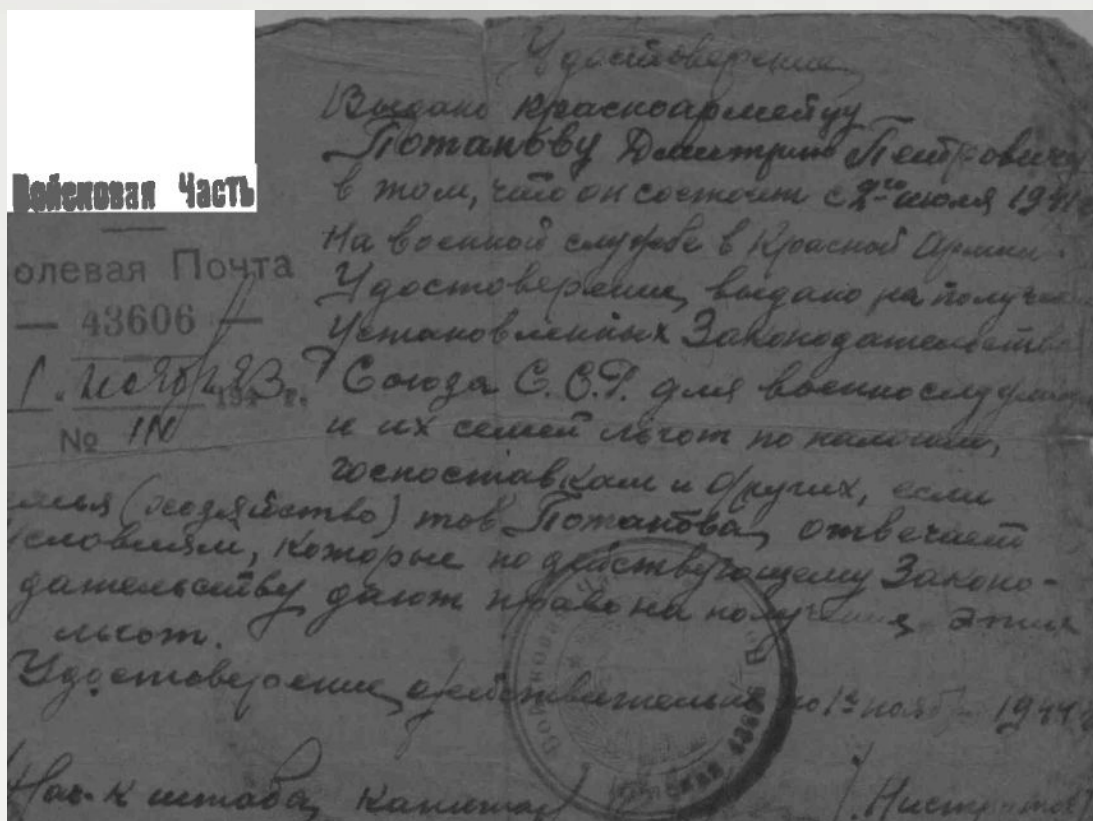 Войсковая Часть
олевая Почта
— 43606 —
1. 194 г.
№ 1N
Удостоверение
Выдано красноармейцу
Потапову Дмитрию Петровичу
в том, что он состоит с 2го июля 1941
На военной службе в Красной Армии.
Удостоверение выдано на получен
установленных Законодательств
Союза С.С.Р. для военнослужащ
и их семей льгот по налогам,
госпоставкам и других, если
емья (хозяйство) тов Потапова, отвечает
условиям, которые по действующему Законо-
дательству дают право на получения этих
льгот.
Удостоверение действительно по 1е нояб 1944 г
Нач-к штаба, капитан